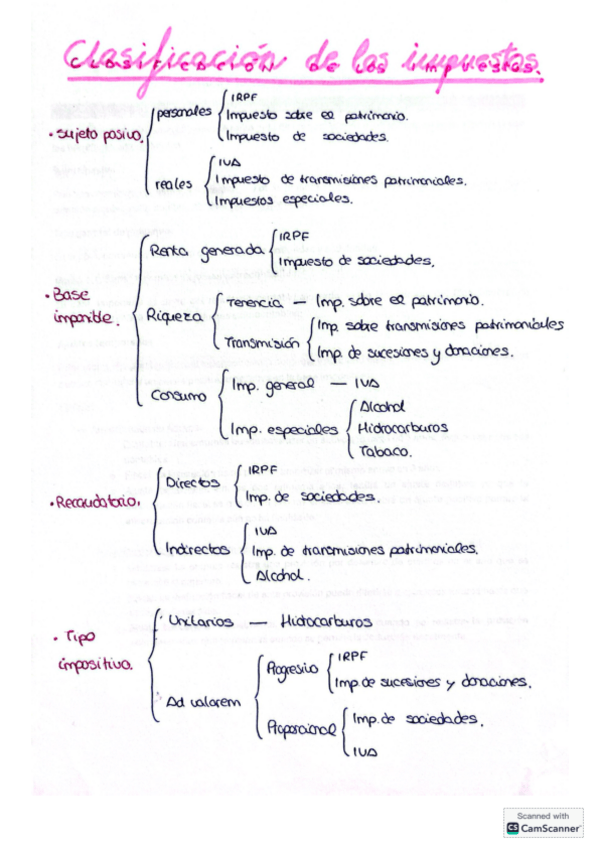 Clasificación de los impuestos.
· Sujeto pasivo.
personales
IRPF
Impuesto sobre el patrimonio.
Impuesto de sociedades.
reales
IVA
Impuesto de transmisiones patrimoniales.
Impuestos especiales.
· Base imponible.
Renta generada
IRPF
Impuesto de sociedades.
Riqueza
Tenencia — Imp. sobre el patrimonio.
Transmisión
Imp. sobre transmisiones patrimoniales
Imp. de sucesiones y donaciones.
Consumo
Imp. general — IVA
Imp. especiales
Alcohol
Hidrocarburos
Tabaco.
· Recaudatorio.
Directos
IRPF
Imp. de sociedades.
Indirectos
IVA
Imp. de transmisiones patrimoniales.
Alcohol.
· Tipo impositivo.
Unitarios — Hidrocarburos
Ad valorem
Progresivo
IRPF
Imp. de sucesiones y donaciones.
Proporcional
Imp. de sociedades.
IVA
Scanned with
CS CamScanner